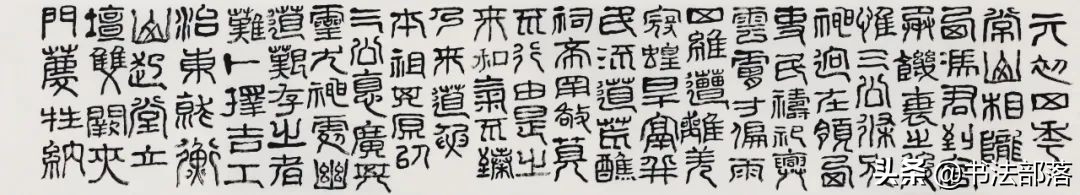 元初四年
常山相隴
西馮君到官
承饑衰之後
惟三公條別
神迥在領西
吏民禱祀興
雲膚寸偏雨
四維遭離羌
寇蝗旱鬲并
民流道荒醮
祠希罕敬奠
不行由是之
來和氣不臻
乃來道要
本祖其原以
三公悳廣其
靈尤神處幽
道艱存之者
難卜擇吉工
治東就衡
山起堂立
壇雙闕夾
門薦牲納
头条 @书法部落